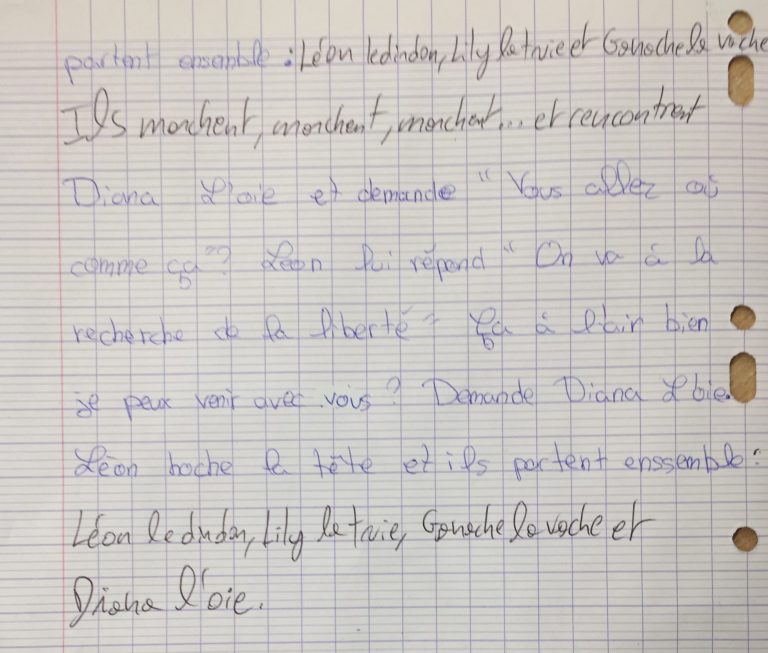 partent ensemble : Léon ledindon, Lily la truie et Ganache la vache
Ils marchent, marchent, marchent... et rencontrent
Diana L'oie et demande " Vous allez où
comme ça "? Léon lui répond " On va à la
recherche de la liberté - Ça à l'air bien
je peux venir avec vous ? Demande Diana L'oie.
Léon hoche la tête et ils partent enssemble :
Léon le dindon, Lily la truie, Ganache la vache et
Diana l'oie.